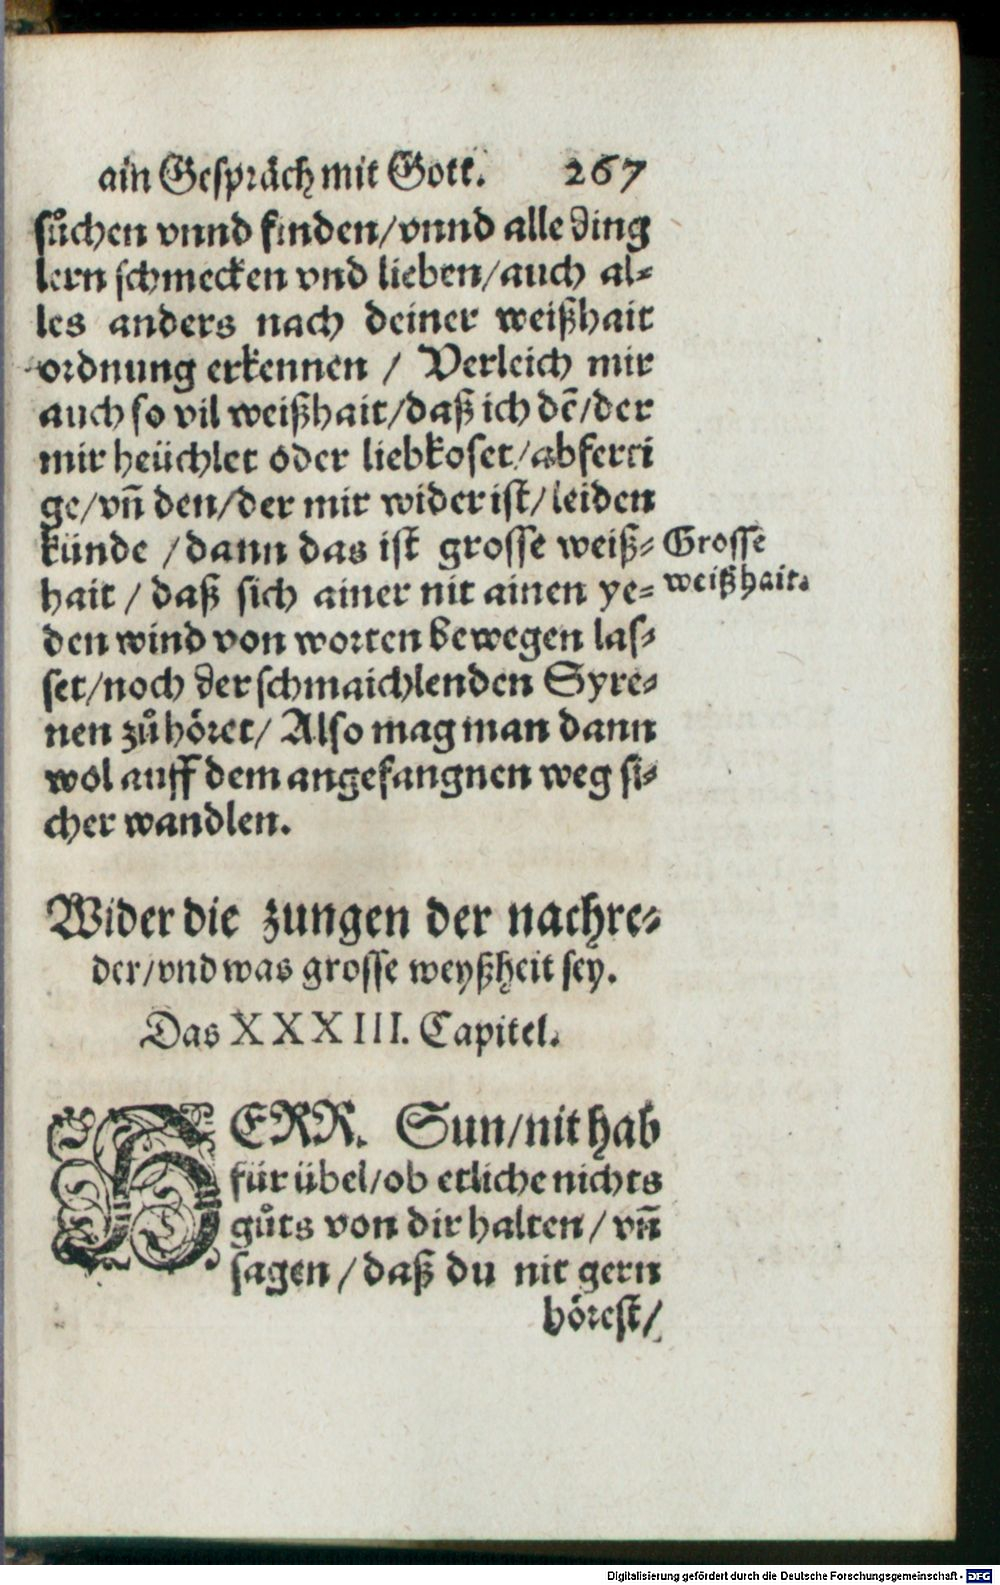 ain Gespräch mit Gott. 267
sůchen vnnd finden/vnnd alle ding
lern schmecken vnd lieben/auch al-
les anders nach deiner weißhait
ordnung erkennen / Verleich mir
auch so vil weißhait/daß ich dẽ/der
mir heüchlet oder liebkoset/abferti
ge/vñ den/der mir wider ist/leiden
künde /dann das ist grosse weiß-
Grosse
hait / daß sich ainer nit ainen ye-
weißhait.
den wind von worten bewegen las-
set/noch der schmaichlenden Syre-
nen zůhöret/ Also mag man dann
wol auff dem angefangnen weg si-
cher wandlen.
Wider die zungen der nachre-
der/vnd was grosse weyßheit sey.
Das XXXIII. Capitel.
HERR. Sun/nit hab
für übel/ob etliche nichts
gůts von dir halten / vñ
sagen /daß du nit gern
hörest/
Digitalisierung gefördert durch die Deutsche Forschungsgemeinschaft - DFG